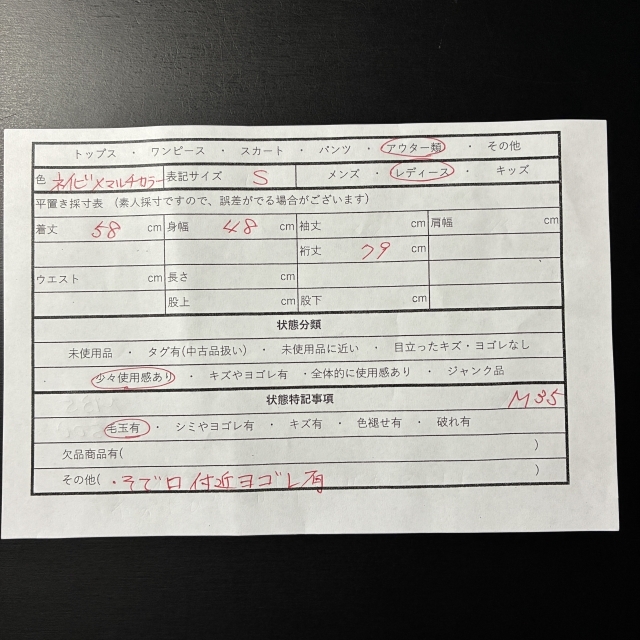 トップス ・ ワンピース ・ スカート ・ パンツ ・ アウター類 ・ その他
色 ネイビ×マルチカラー 表記サイズ S メンズ ・ レディース ・ キッズ
平置き採寸表 (素人採寸ですので、誤差がでる場合がございます)
着丈 58 cm 身幅 48 cm 袖丈 cm 肩幅 cm
裄丈 79 cm
ウエスト cm 長さ cm
股上 cm 股下 cm
状態分類
未使用品 ・ タグ有(中古品扱い) ・ 未使用品に近い ・ 目立ったキズ・ヨゴレなし
・ 少々使用感あり ・ キズやヨゴレ有 ・全体的に使用感あり ・ ジャンク品
状態特記事項 M35
毛玉有 ・ シミやヨゴレ有 ・ キズ有 ・ 色褪せ有 ・ 破れ有
欠品商品有( )
その他( ・そで口付近ヨゴレ有 )